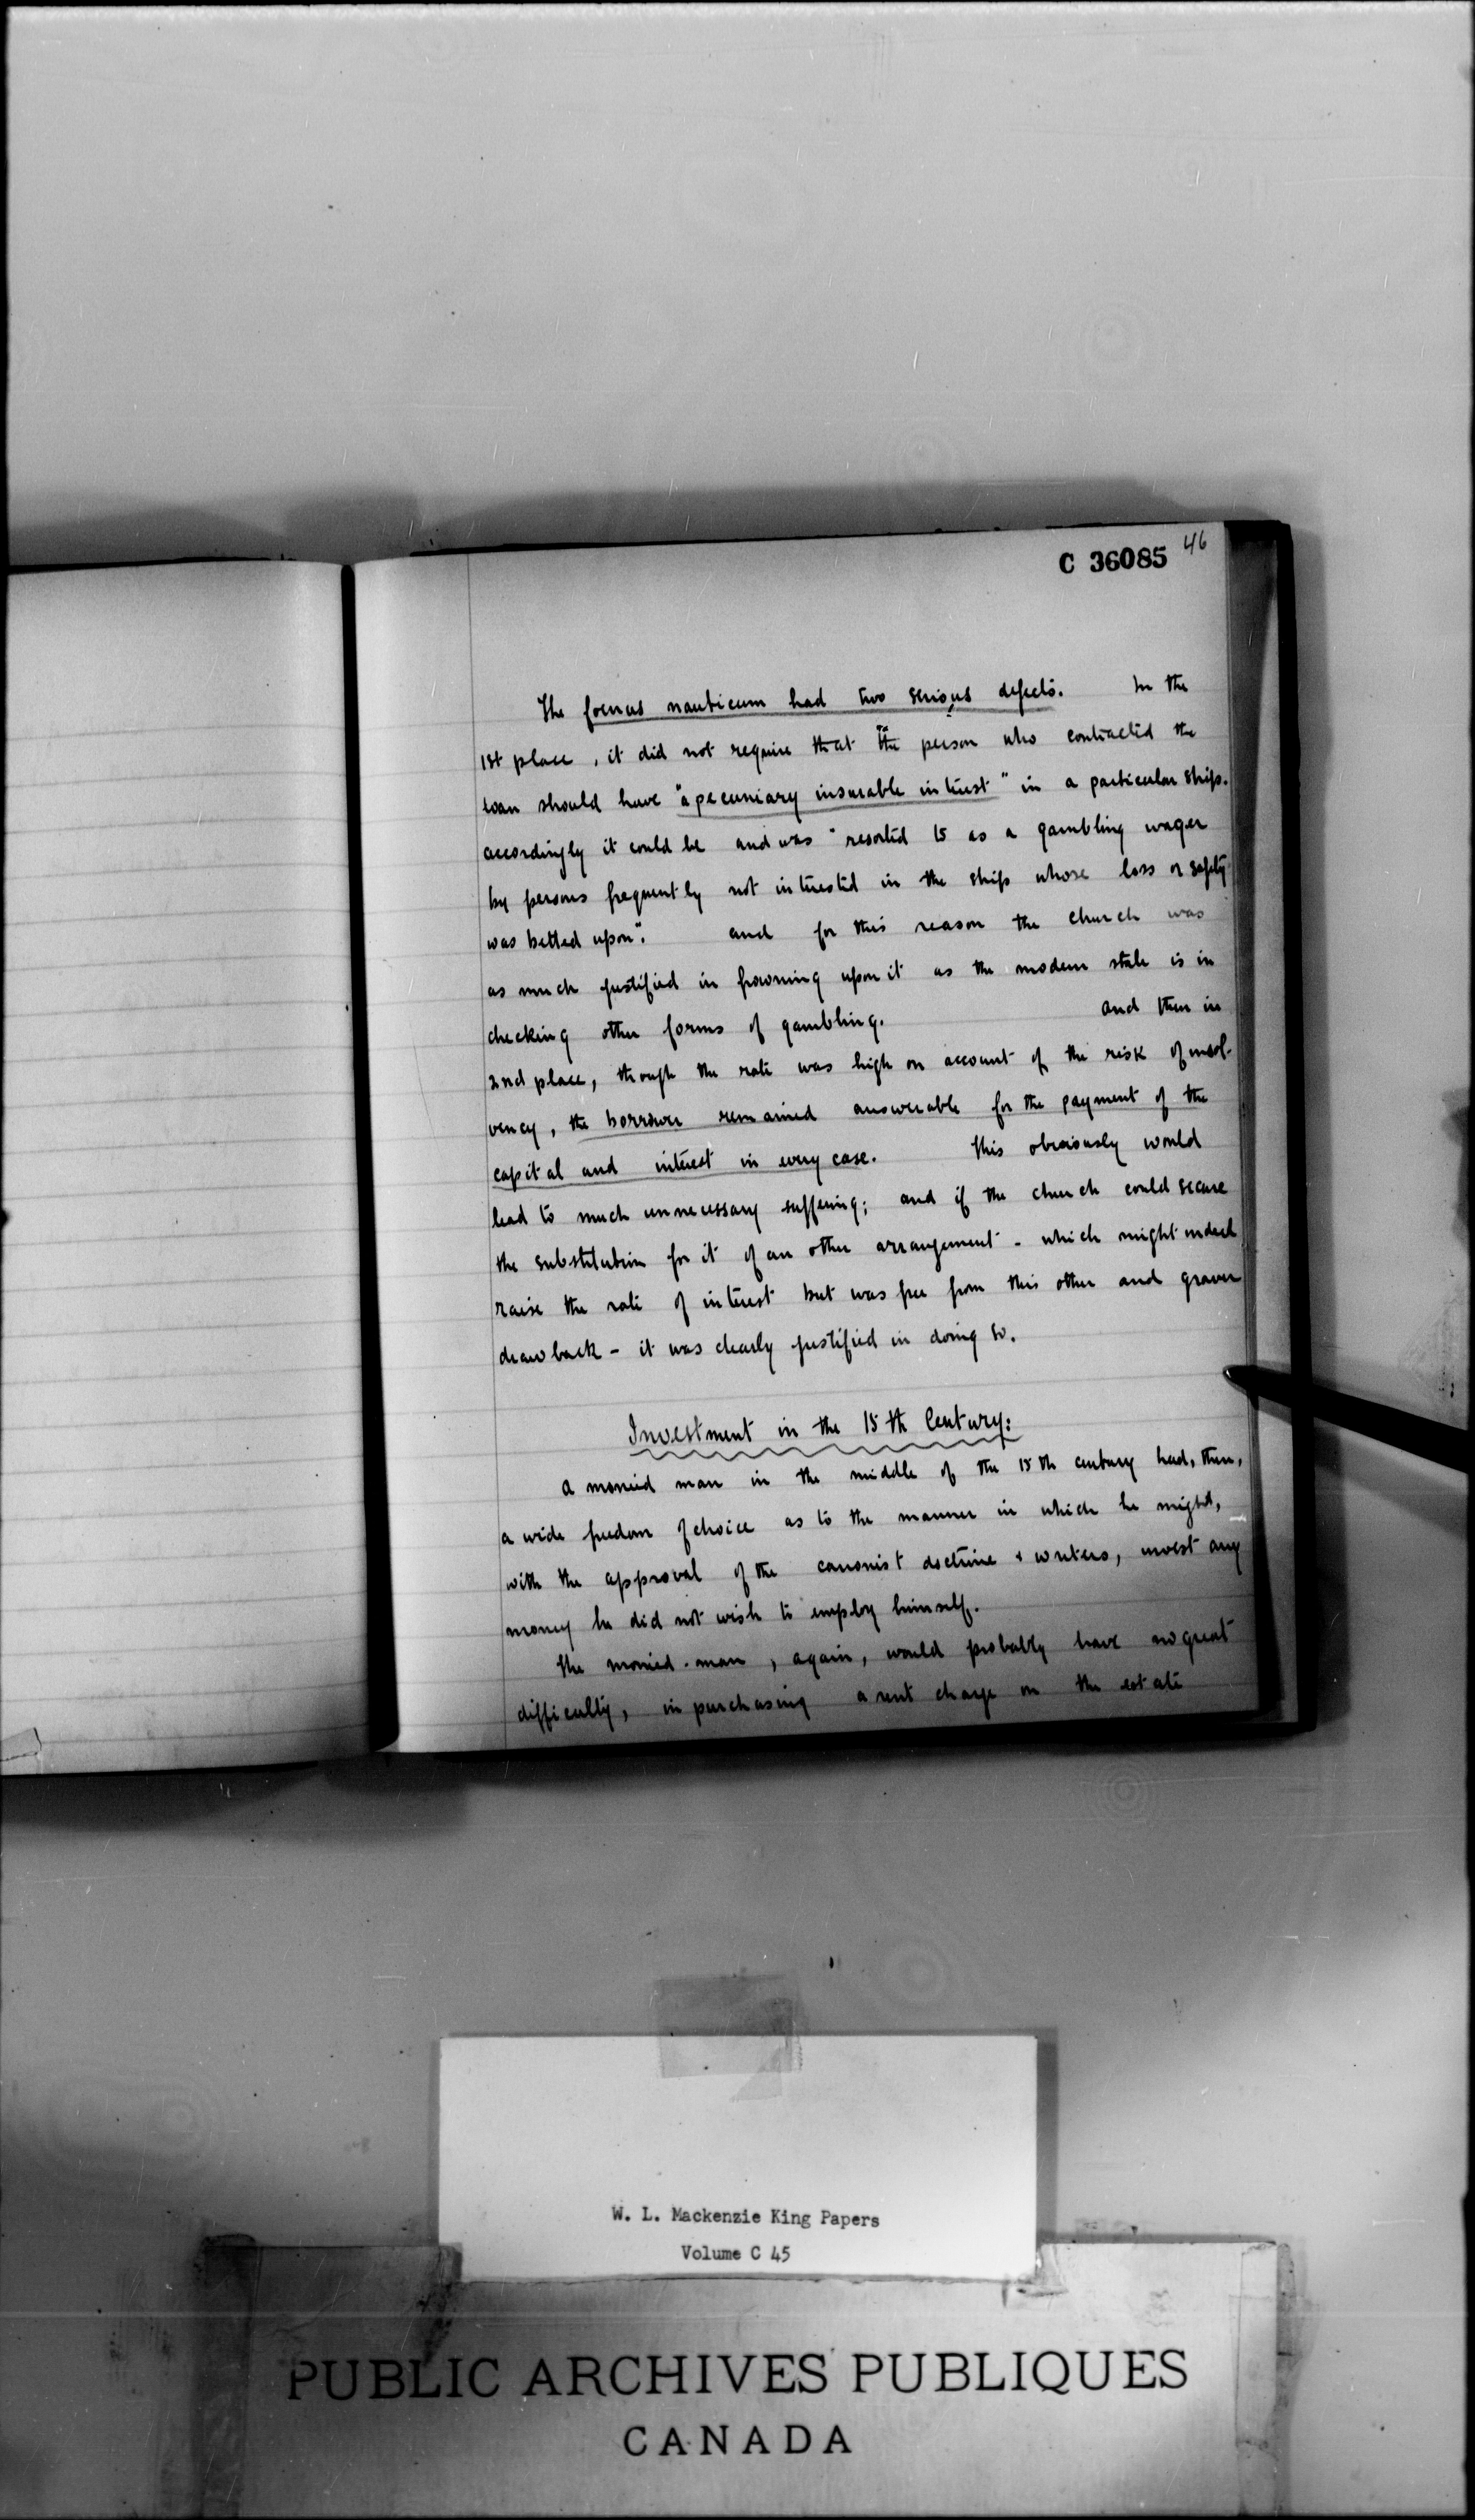 46
C 36085
The foenus nauticum had two serious defects. In the
1st place, it did not require that the person who contracted the
loan should have "a pecuniary insurable interest" in a particular ship.
accordingly it could be and was "resorted to as a gambling wager
by persons frequently not interested in the ship whose loss or safety
was betted upon". and for this reason the church was
as much justified in frowning upon it as the modern state is in
checking other forms of gambling. and then in
2nd place, though the rate was high on account of the risk of insol-
vency, the borrower remained answerable for the payment of the
capital and interest in every case. This obviously would
lead to much unnecessary suffering; and if the church could secure
the substitution for it of an other arrangement - which might indeed
raise the rate of interest but was free from this other and graver
drawback - it was clearly justified in doing so.
Investment in the 15th Century:
a monied man in the middle of the 15th century had, then,
a wide freedom of choice as to the manner in which he might,
with the approval of the canonist doctrine & writers, invest any
money he did not wish to employ himself.
The monied-man, again, would probably have no great
difficulty, in purchasing a rent charge on the estate
W. L. Mackenzie King Papers
Volume C 45
PUBLIC ARCHIVES PUBLIQUES
CANADA